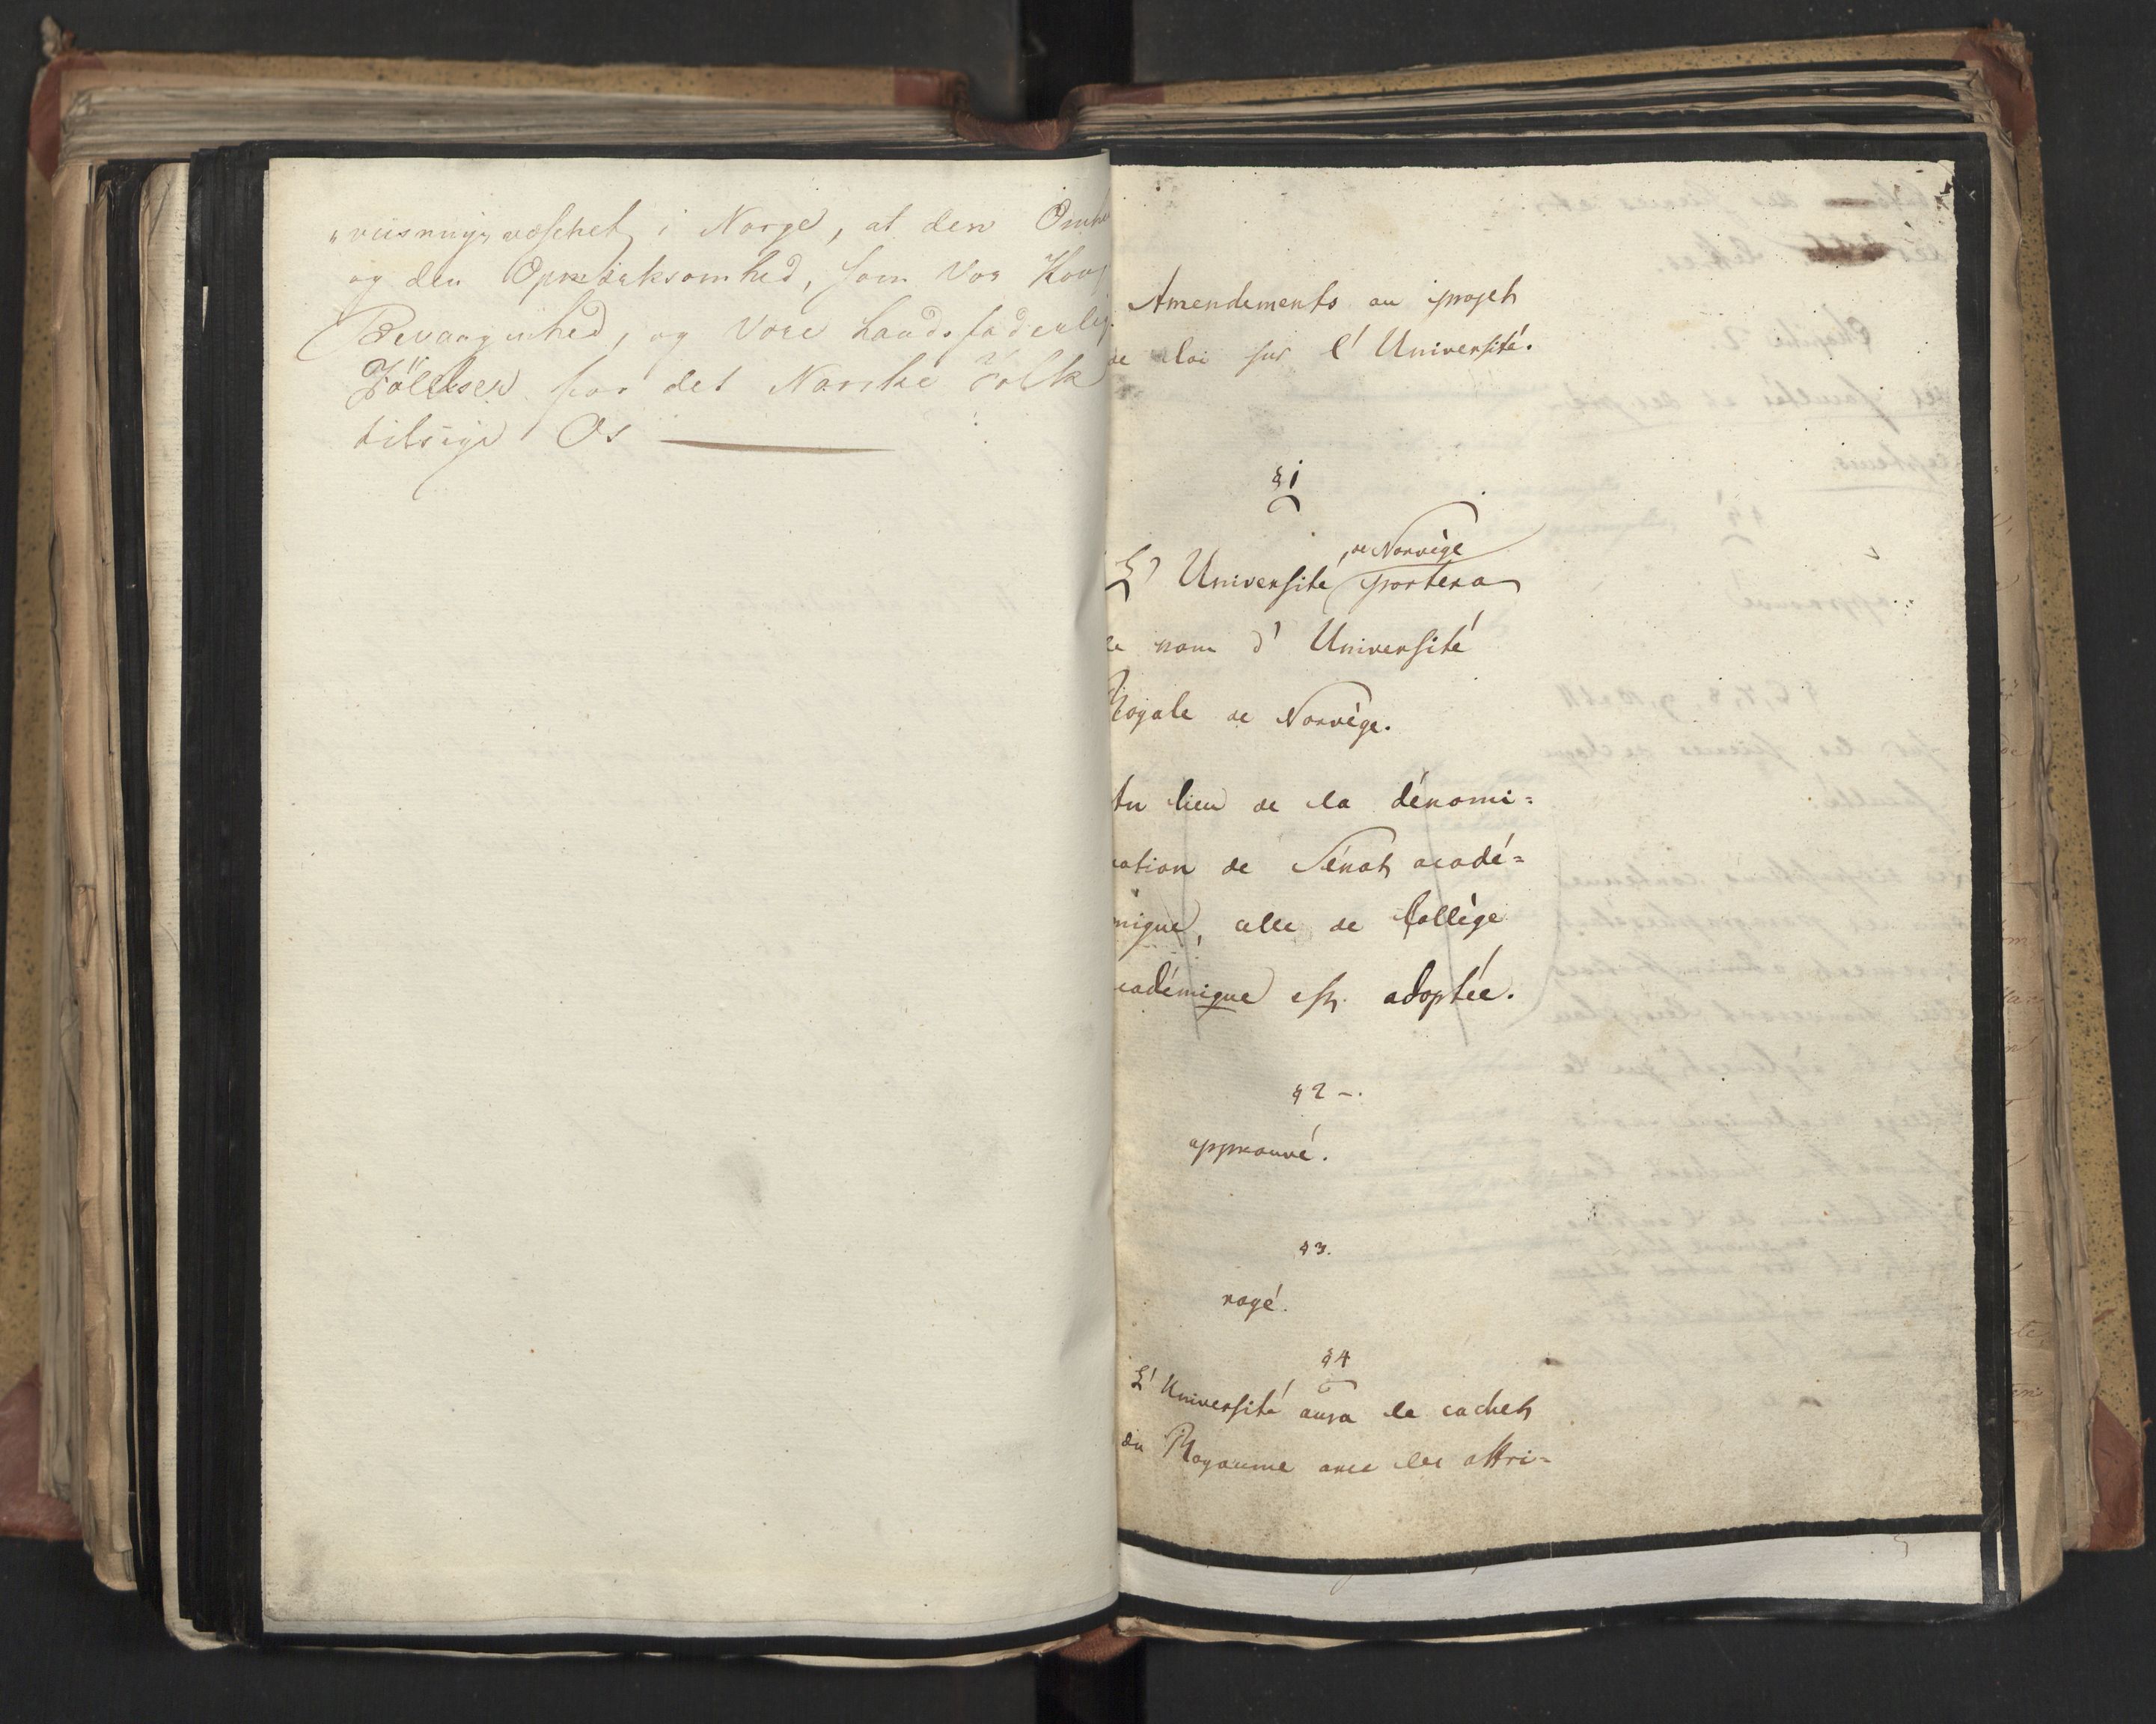 „viisningsvæsenet i Norge, at den
og den Opmærksomhed, som Vor Kong
Bevaagenhed, og Vore Landsfaderlig
Fölelser for det Norske Folk
tilsige Os
Amendements au projet
de loi sur l'Université.
§ 1
de Norvège
L'Université portera
le nom d'Université
Royale de Norvège.
Au lieu de la dénomi=
nation de Sénat acadé=
mique, celle de Collège
académique est adoptée.
§ 2 -.
approuvé.
§ 3.
rayé.
§ 4
L'Université aura le cachet
du Royaume avec les attri=